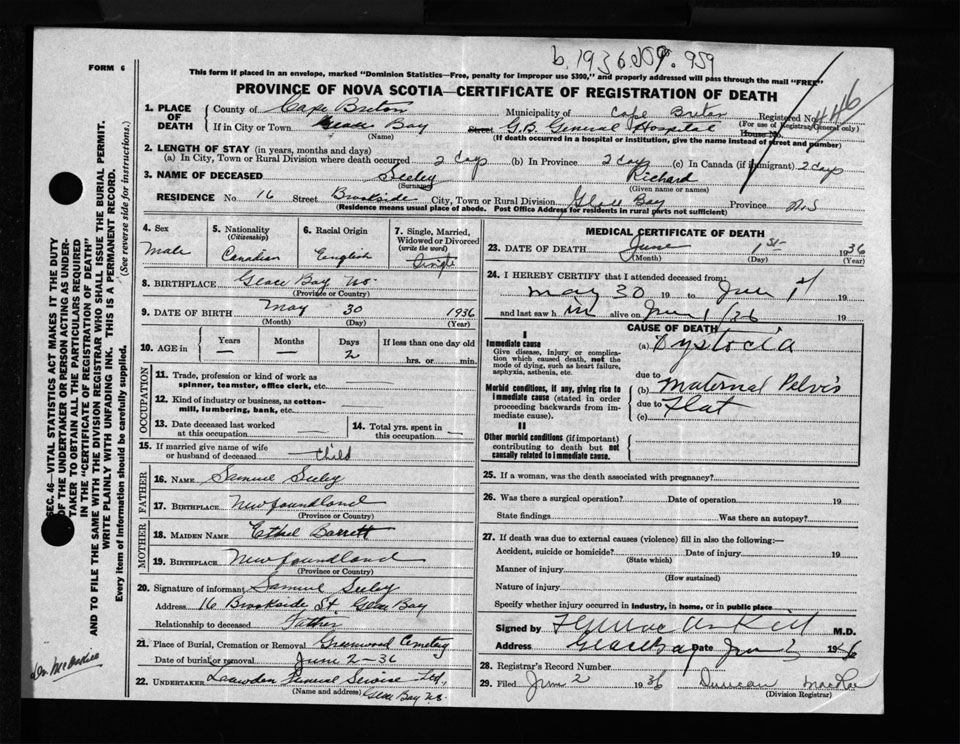 b. 1936 959
FORM 6
This form if placed in an envelope, marked "Dominion Statistics—Free, penalty for improper use $300," and properly addressed will pass through the mail "FREE"
PROVINCE OF NOVA SCOTIA—CERTIFICATE OF REGISTRATION OF DEATH
1. PLACE OF DEATH
County of Cape Breton Municipality of Cape Breton Registered No. 446
(For use of Registrar General only)
If in City or Town Glace Bay Street G.B. General Hospital House No.
(Name) (If death occurred in a hospital or institution, give the name instead of street and number)
2. LENGTH OF STAY (in years, months and days)
(a) In City, Town or Rural Division where death occurred 2 days (b) In Province 2 days (c) In Canada (if immigrant) 2 days
3. NAME OF DECEASED Seeley Richard
(Surname) (Given name or names)
RESIDENCE No. 16 Street Brookside City, Town or Rural Division Glace Bay Province N.S
(Residence means usual place of abode. Post Office Address for residents in rural parts not sufficient)
4. Sex
Male
5. Nationality
(Citizenship)
Canadian
6. Racial Origin
English
7. Single, Married, Widowed or Divorced
(write the word)
Single
8. BIRTHPLACE Glace Bay N.S.
(Province or Country)
9. DATE OF BIRTH May 30 1936
(Month) (Day) (Year)
10. AGE in
Years Months Days If less than one day old
— — 2 hrs. or min.
OCCUPATION
11. Trade, profession or kind of work as spinner, teamster, office clerk, etc.
12. Kind of industry or business, as cotton-mill, lumbering, bank, etc.
13. Date deceased last worked at this occupation
14. Total yrs. spent in this occupation
15. If married give name of wife or husband of deceased Child
FATHER
16. NAME Samuel Seeley
17. BIRTHPLACE Newfoundland
(Province or Country)
MOTHER
18. MAIDEN NAME Ethel Barrett
19. BIRTHPLACE Newfoundland
(Province or Country)
20. Signature of informant Samuel Seeley
Address 16 Brookside St. Glace Bay
Relationship to deceased Father
21. Place of Burial, Cremation or Removal Greenwood Cemetery
Date of burial or removal June 2-36
22. UNDERTAKER Funeral Service Ltd.,
(Name and address) Glace Bay N.S.
MEDICAL CERTIFICATE OF DEATH
23. DATE OF DEATH June 1st 1936
(Month) (Day) (Year)
24. I HEREBY CERTIFY that I attended deceased from:
May 30 19 to June 1st 19
and last saw h im alive on June 1/36 19
CAUSE OF DEATH
I
Immediate cause
Give disease, injury or complication which caused death, not the mode of dying, such as heart failure, asphyxia, asthenia, etc.
(a) Dystocia
due to
Morbid conditions, if any, giving rise to immediate cause (stated in order proceeding backwards from immediate cause).
(b) Maternal Pelvis
due to Flat
(c)
II
Other morbid conditions (if important) contributing to death but not causally related to immediate cause.
25. If a woman, was the death associated with pregnancy?
26. Was there a surgical operation? Date of operation 19
State findings Was there an autopsy?
27. If death was due to external causes (violence) fill in also the following:—
Accident, suicide or homicide? Date of injury 19
(State which)
Manner of injury
(How sustained)
Nature of injury
Specify whether injury occurred in industry, in home, or in public place
Signed by M.D.
Address Glace Bay Date June 1936
28. Registrar's Record Number
29. Filed June 2 1936 Duncan MacRae
(Division Registrar)
SEC. 46—VITAL STATISTICS ACT MAKES IT THE DUTY
OF THE UNDERTAKER OR PERSON ACTING AS UNDER-
TAKER TO OBTAIN ALL THE PARTICULARS REQUIRED
IN THE "CERTIFICATE OF REGISTRATION OF DEATH"
AND TO FILE THE SAME WITH THE DIVISION REGISTRAR WHO SHALL ISSUE THE BURIAL PERMIT.
WRITE PLAINLY WITH UNFADING INK. THIS IS A PERMANENT RECORD.
Every item of information should be carefully supplied. (See reverse side for instructions.)